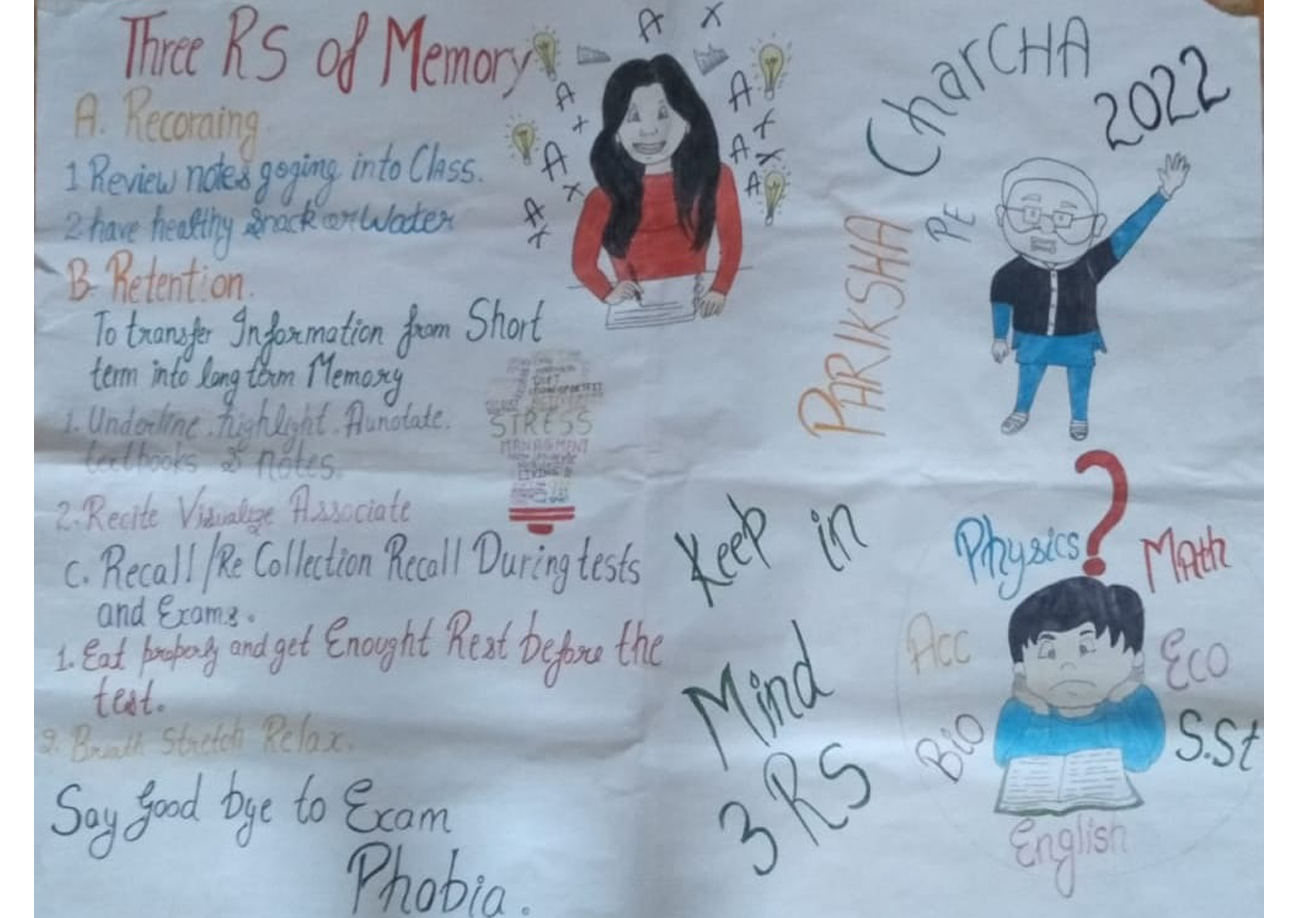 Three RS of Memory
A. Recoraing.
1 Review notes goging into Class.
2 have healthy Snack or Water
B. Retention.
To transfer Information from Short
term into long term Memory
1. Underline. highlight. Aunotate.
textbooks & notes.
2. Recite Visualize Associate
C. Recall/Re Collection Recall During tests
and Exams.
1. Eat properly and get Enought Rest before the
test.
2. Breath Stretch Relax.
Say Good bye to Exam
Phobia.
A X
A A
X X
A A
X X
A A
X
STRESS
MANAGMENT
PARIKSHA
PE
CharCHA
2022
Keep in
Mind
3 RS
?
Physics Math
Acc Eco
Bio S.St
English